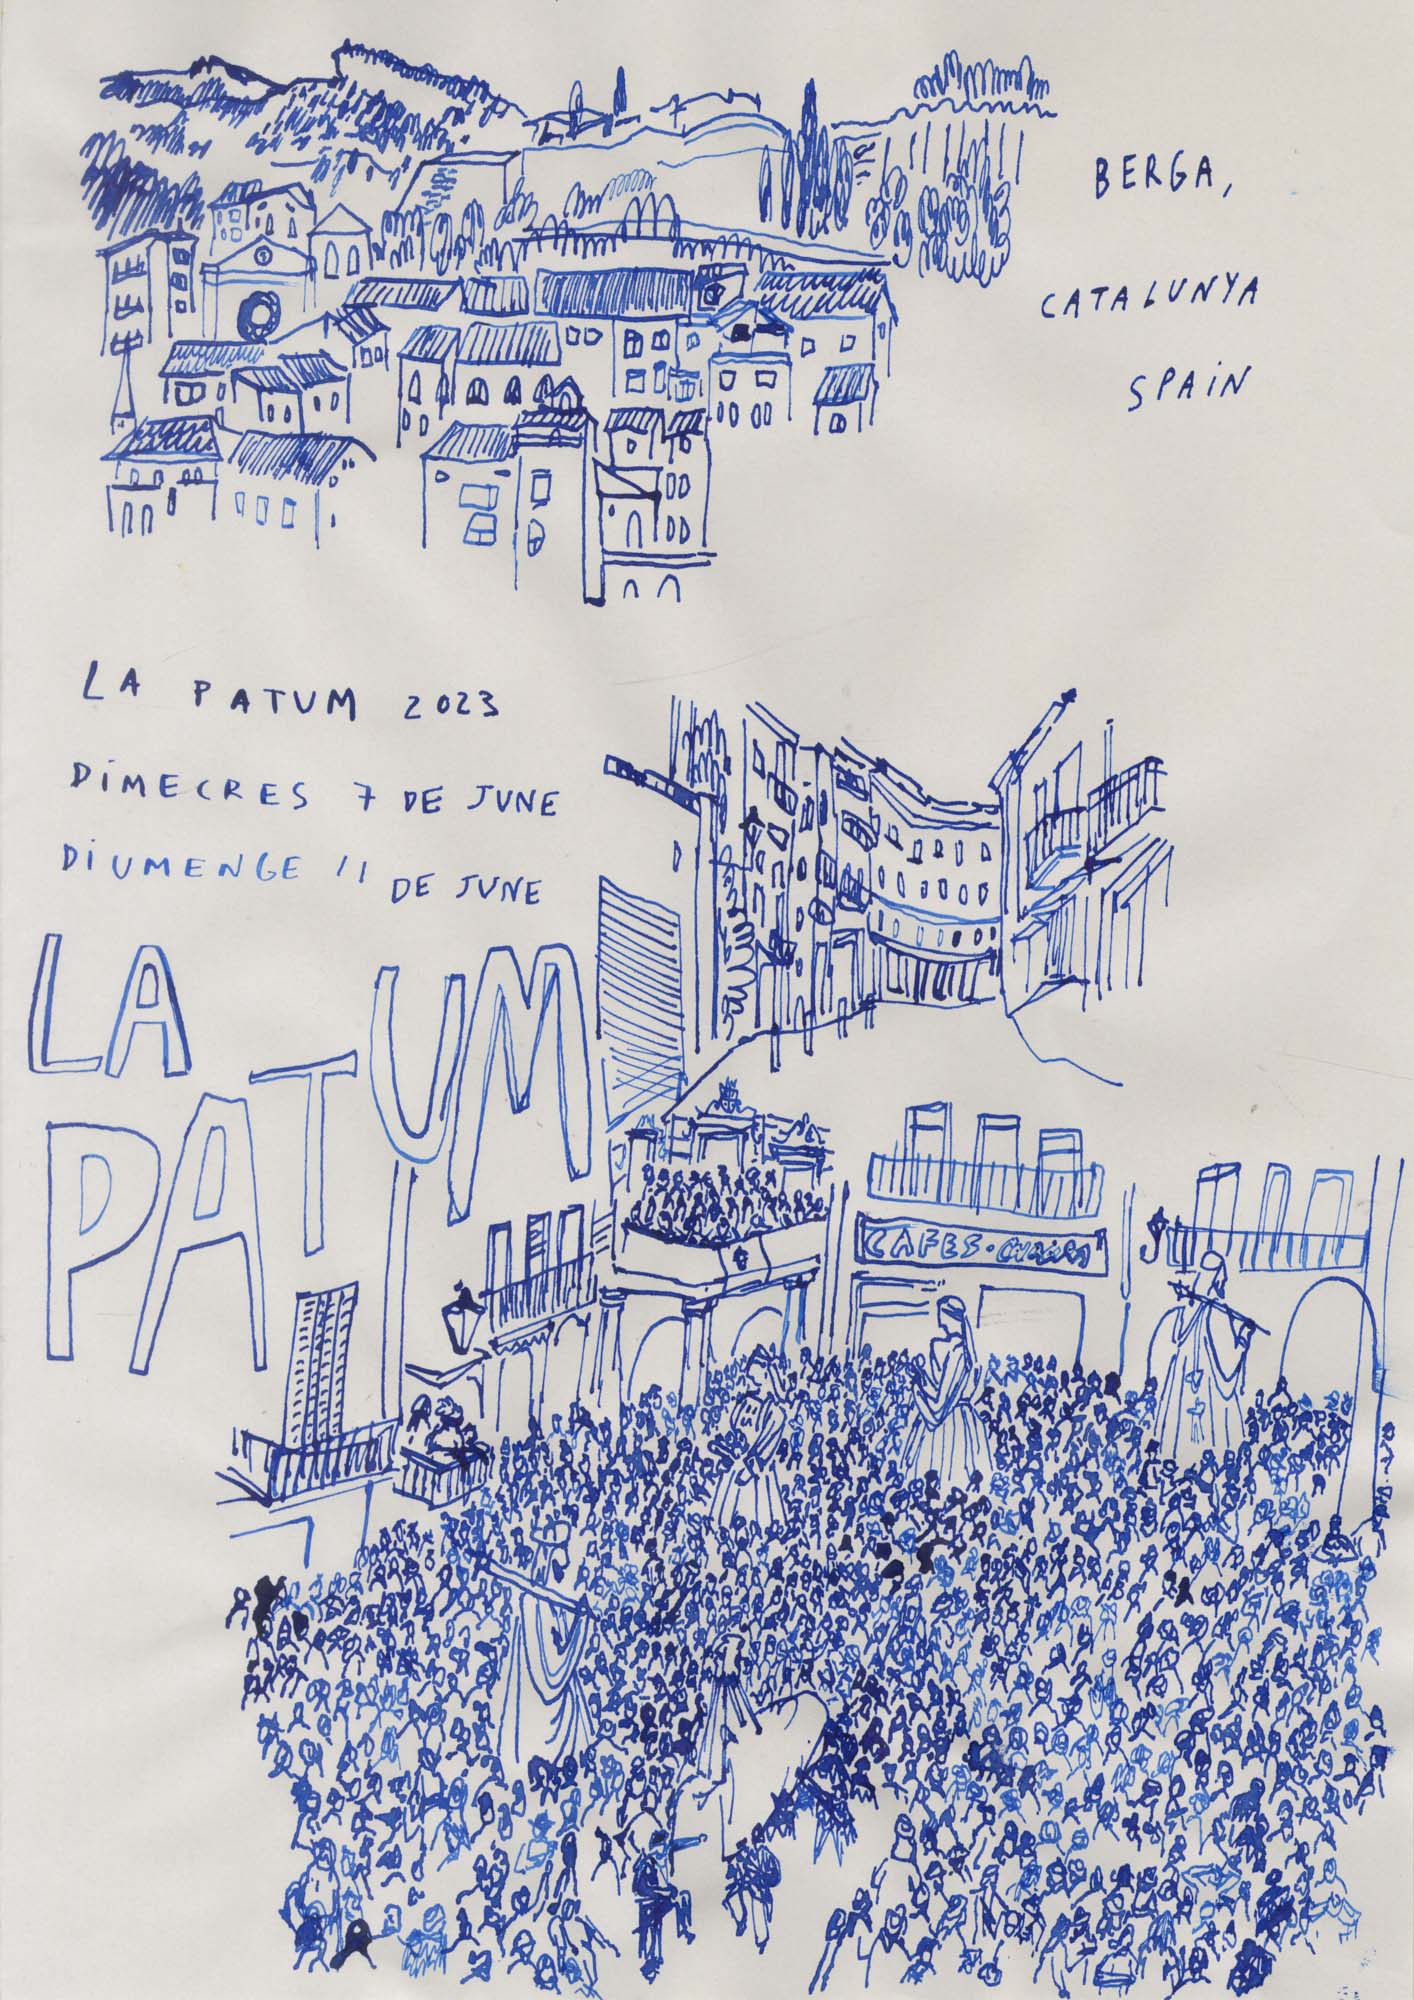 BERGA,
CATALUNYA
SPAIN
LA PATUM 2023
DIMECRES 7 DE JUNE
DIUMENGE 11 DE JUNE
LA
PATUM
CAFES.